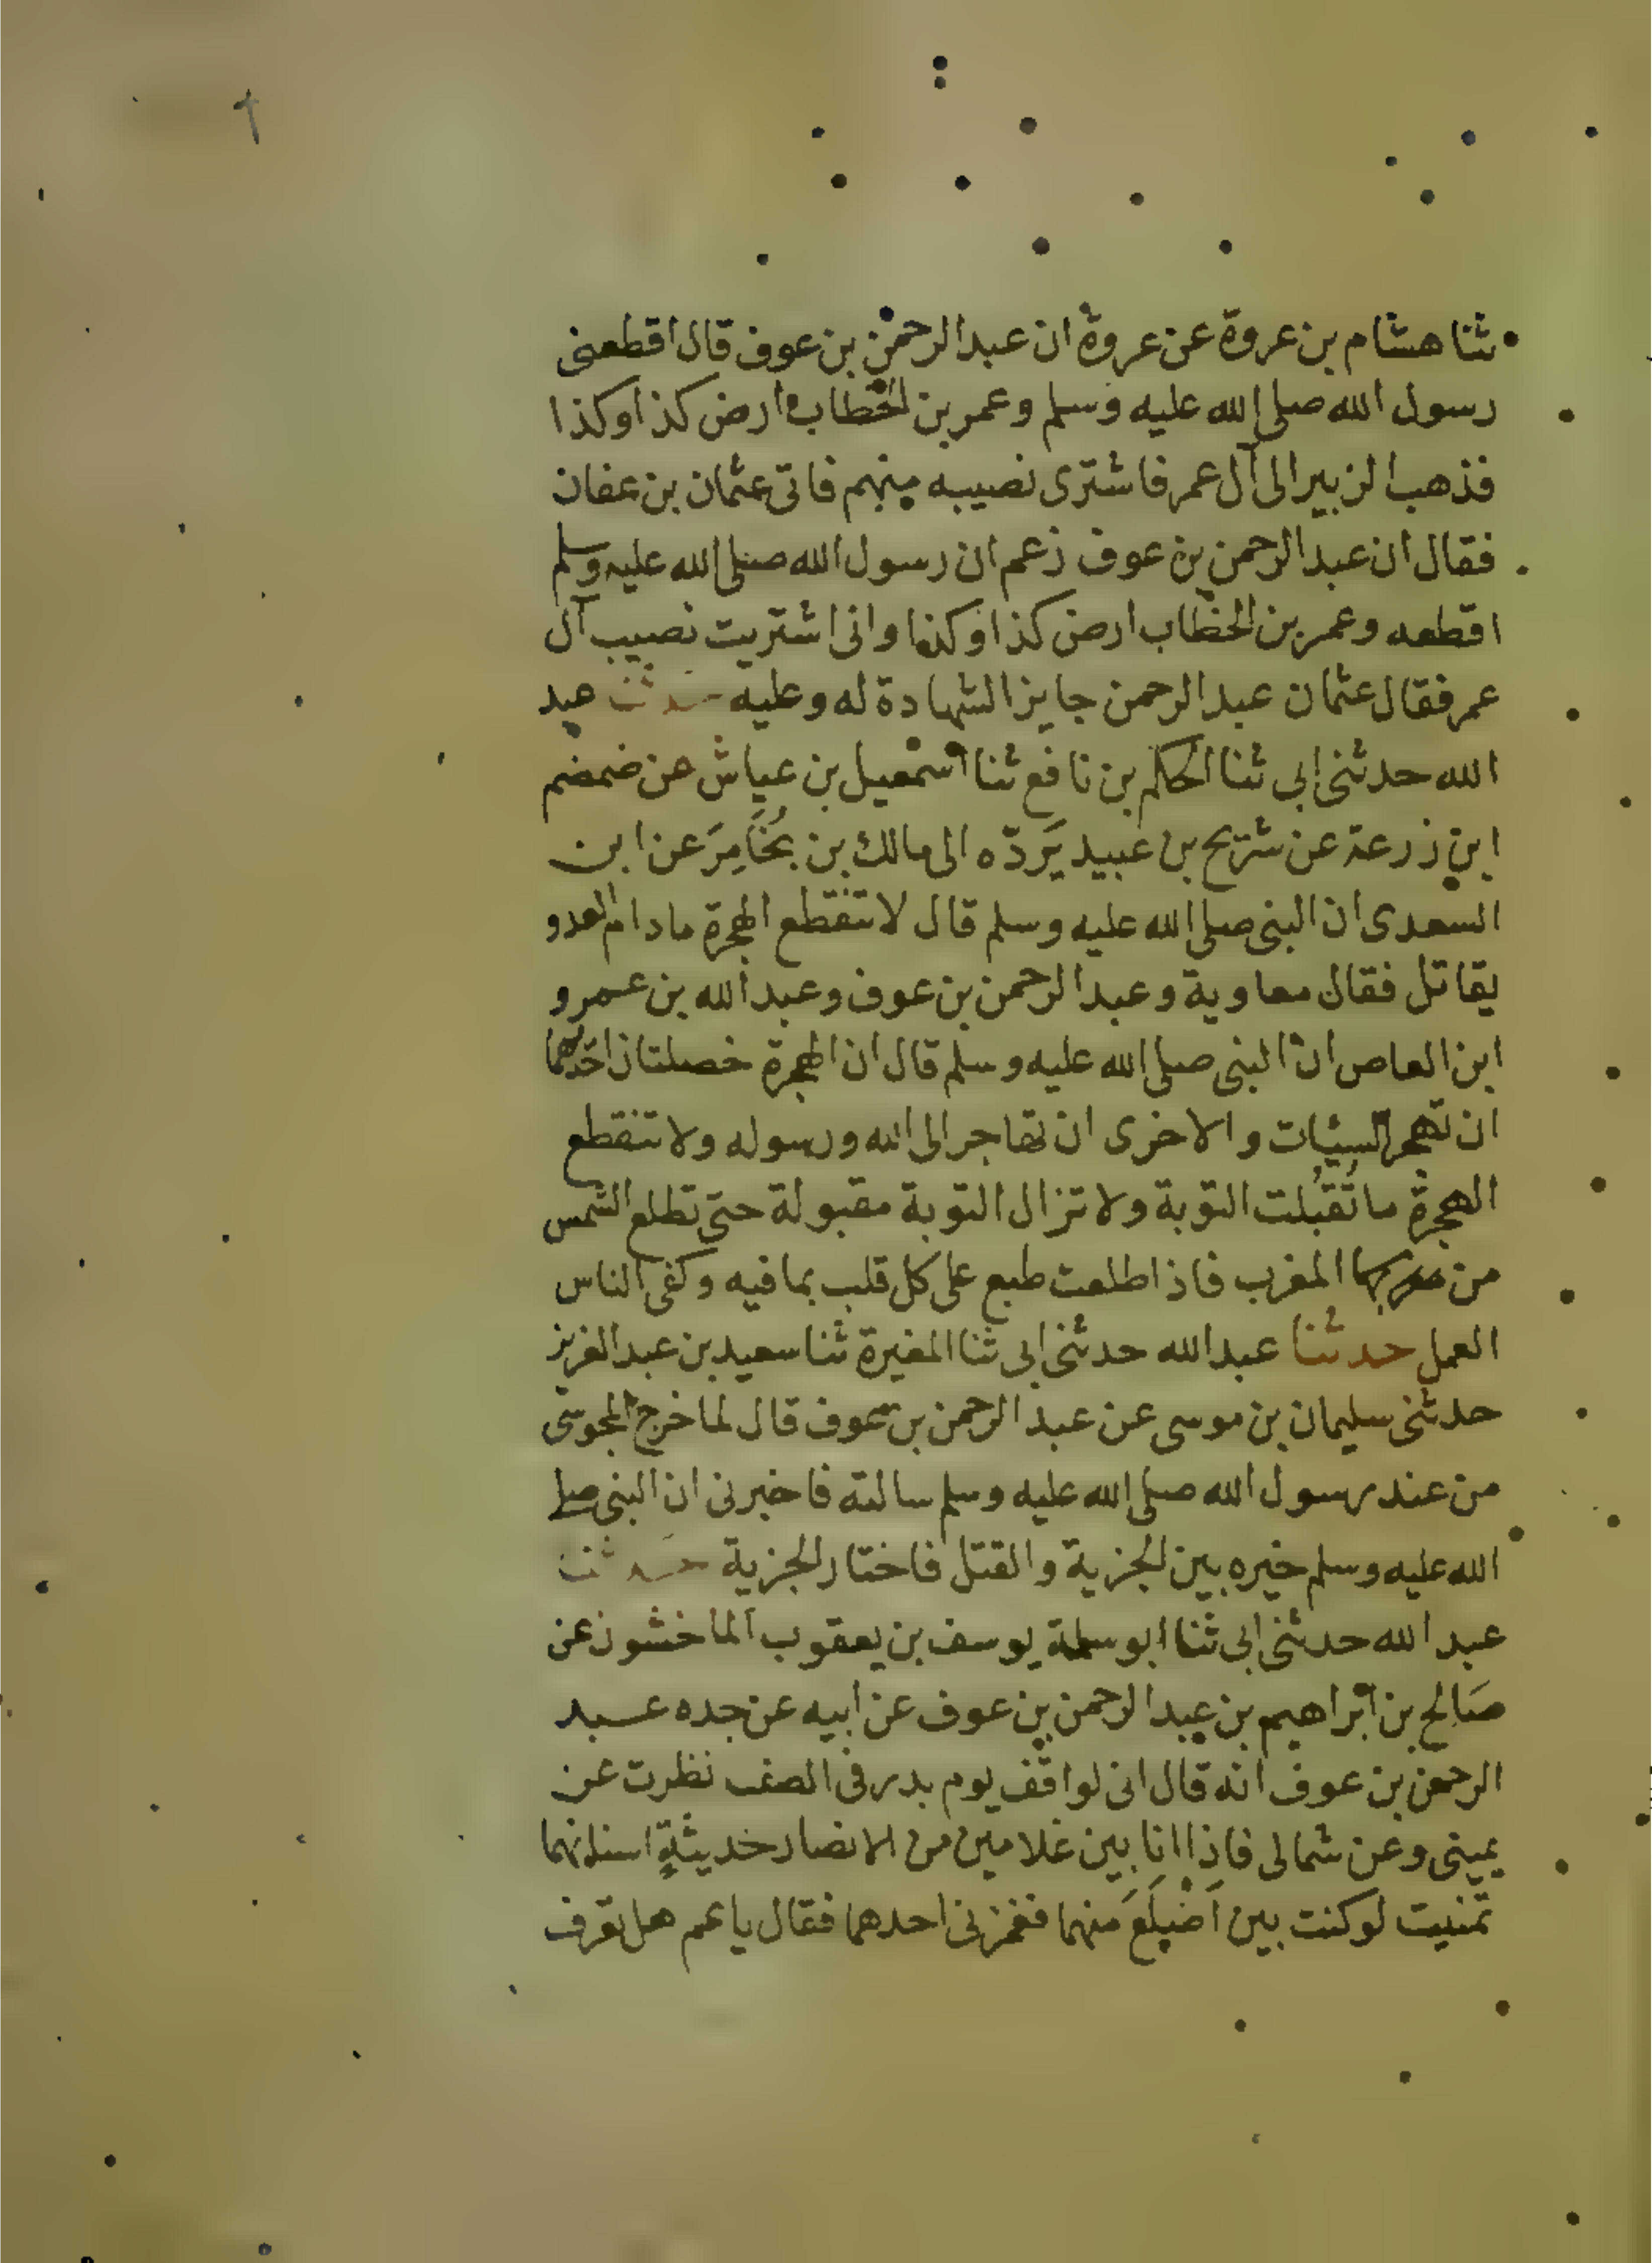 ثنا هشام بن عروة عن عروة ان عبد الرحمن بن عوف قال اقطعنى
رسول الله صلى الله عليه وسلم وعمر بن الخطاب ارض كذا وكذا
فذهب الزبير الى آل عمر فاشترى نصيبه منهم فاتى عثمان بن عفان
فقال ان عبد الرحمن بن عوف زعم ان رسول الله صلى الله عليه وسلم
اقطعه وعمر بن الخطاب ارض كذا وكذا وانى اشتريت نصيب آل
عمر فقال عثمان عبد الرحمن جايز الشهادة له وعليه حدثنا عبد
الله حدثنى ابى ثنا الحكم بن نافع ثنا اسمعيل بن عياش عن ضمضم
ابن زرعة عن شريح بن عبيد يَردّه الى مالك بن يُخَامِرَ عن ابن
السعدى ان النبى صلى الله عليه وسلم قال لا تنقطع الهجرة ما دام العدو
يقاتل فقال معاوية وعبد الرحمن بن عوف وعبد الله بن عمرو
ابن العاص ان النبى صلى الله عليه وسلم قال ان الهجرة خصلتان احدهما
ان تهجر السيئات والاخرى ان تهاجر الى الله ورسوله ولا تنقطع
الهجرة ما تُقبُلت التوبة ولا تزال التوبة مقبولة حتى تطلع الشمس
من المغرب فاذا طلعت طبع على كل قلب بما فيه وكفى الناس
العمل حدثنا عبد الله حدثنى ابى ثنا المغيرة ثنا سعيد بن عبد العزيز
حدثنى سليمان بن موسى عن عبد الرحمن بن عوف قال لما خرج المجوسى
من عند رسول الله صلى الله عليه وسلم سالته فاخبرنى ان النبى صلى
الله عليه وسلم خيره بين الجزية والقتل فاختار الجزية حدثنا
عبد الله حدثنى ابى ثنا ابو سلمة يوسف بن يعقوب الماخشوذ عن
صَالح بن ابراهيم بن عبد الرحمن بن عوف عن ابيه عن جده عبد
الرحمن بن عوف انه قال انى لواقف يوم بدر فى الصف نظرت عن
يمينى وعن شمالى فاذا انا بين غلامين من الانصار حديثةٍ اسنانهما
تمنيت لو كنت بين اَضْلَعَ منهما فغمزنى احدهما فقال يا عم هل تعرف